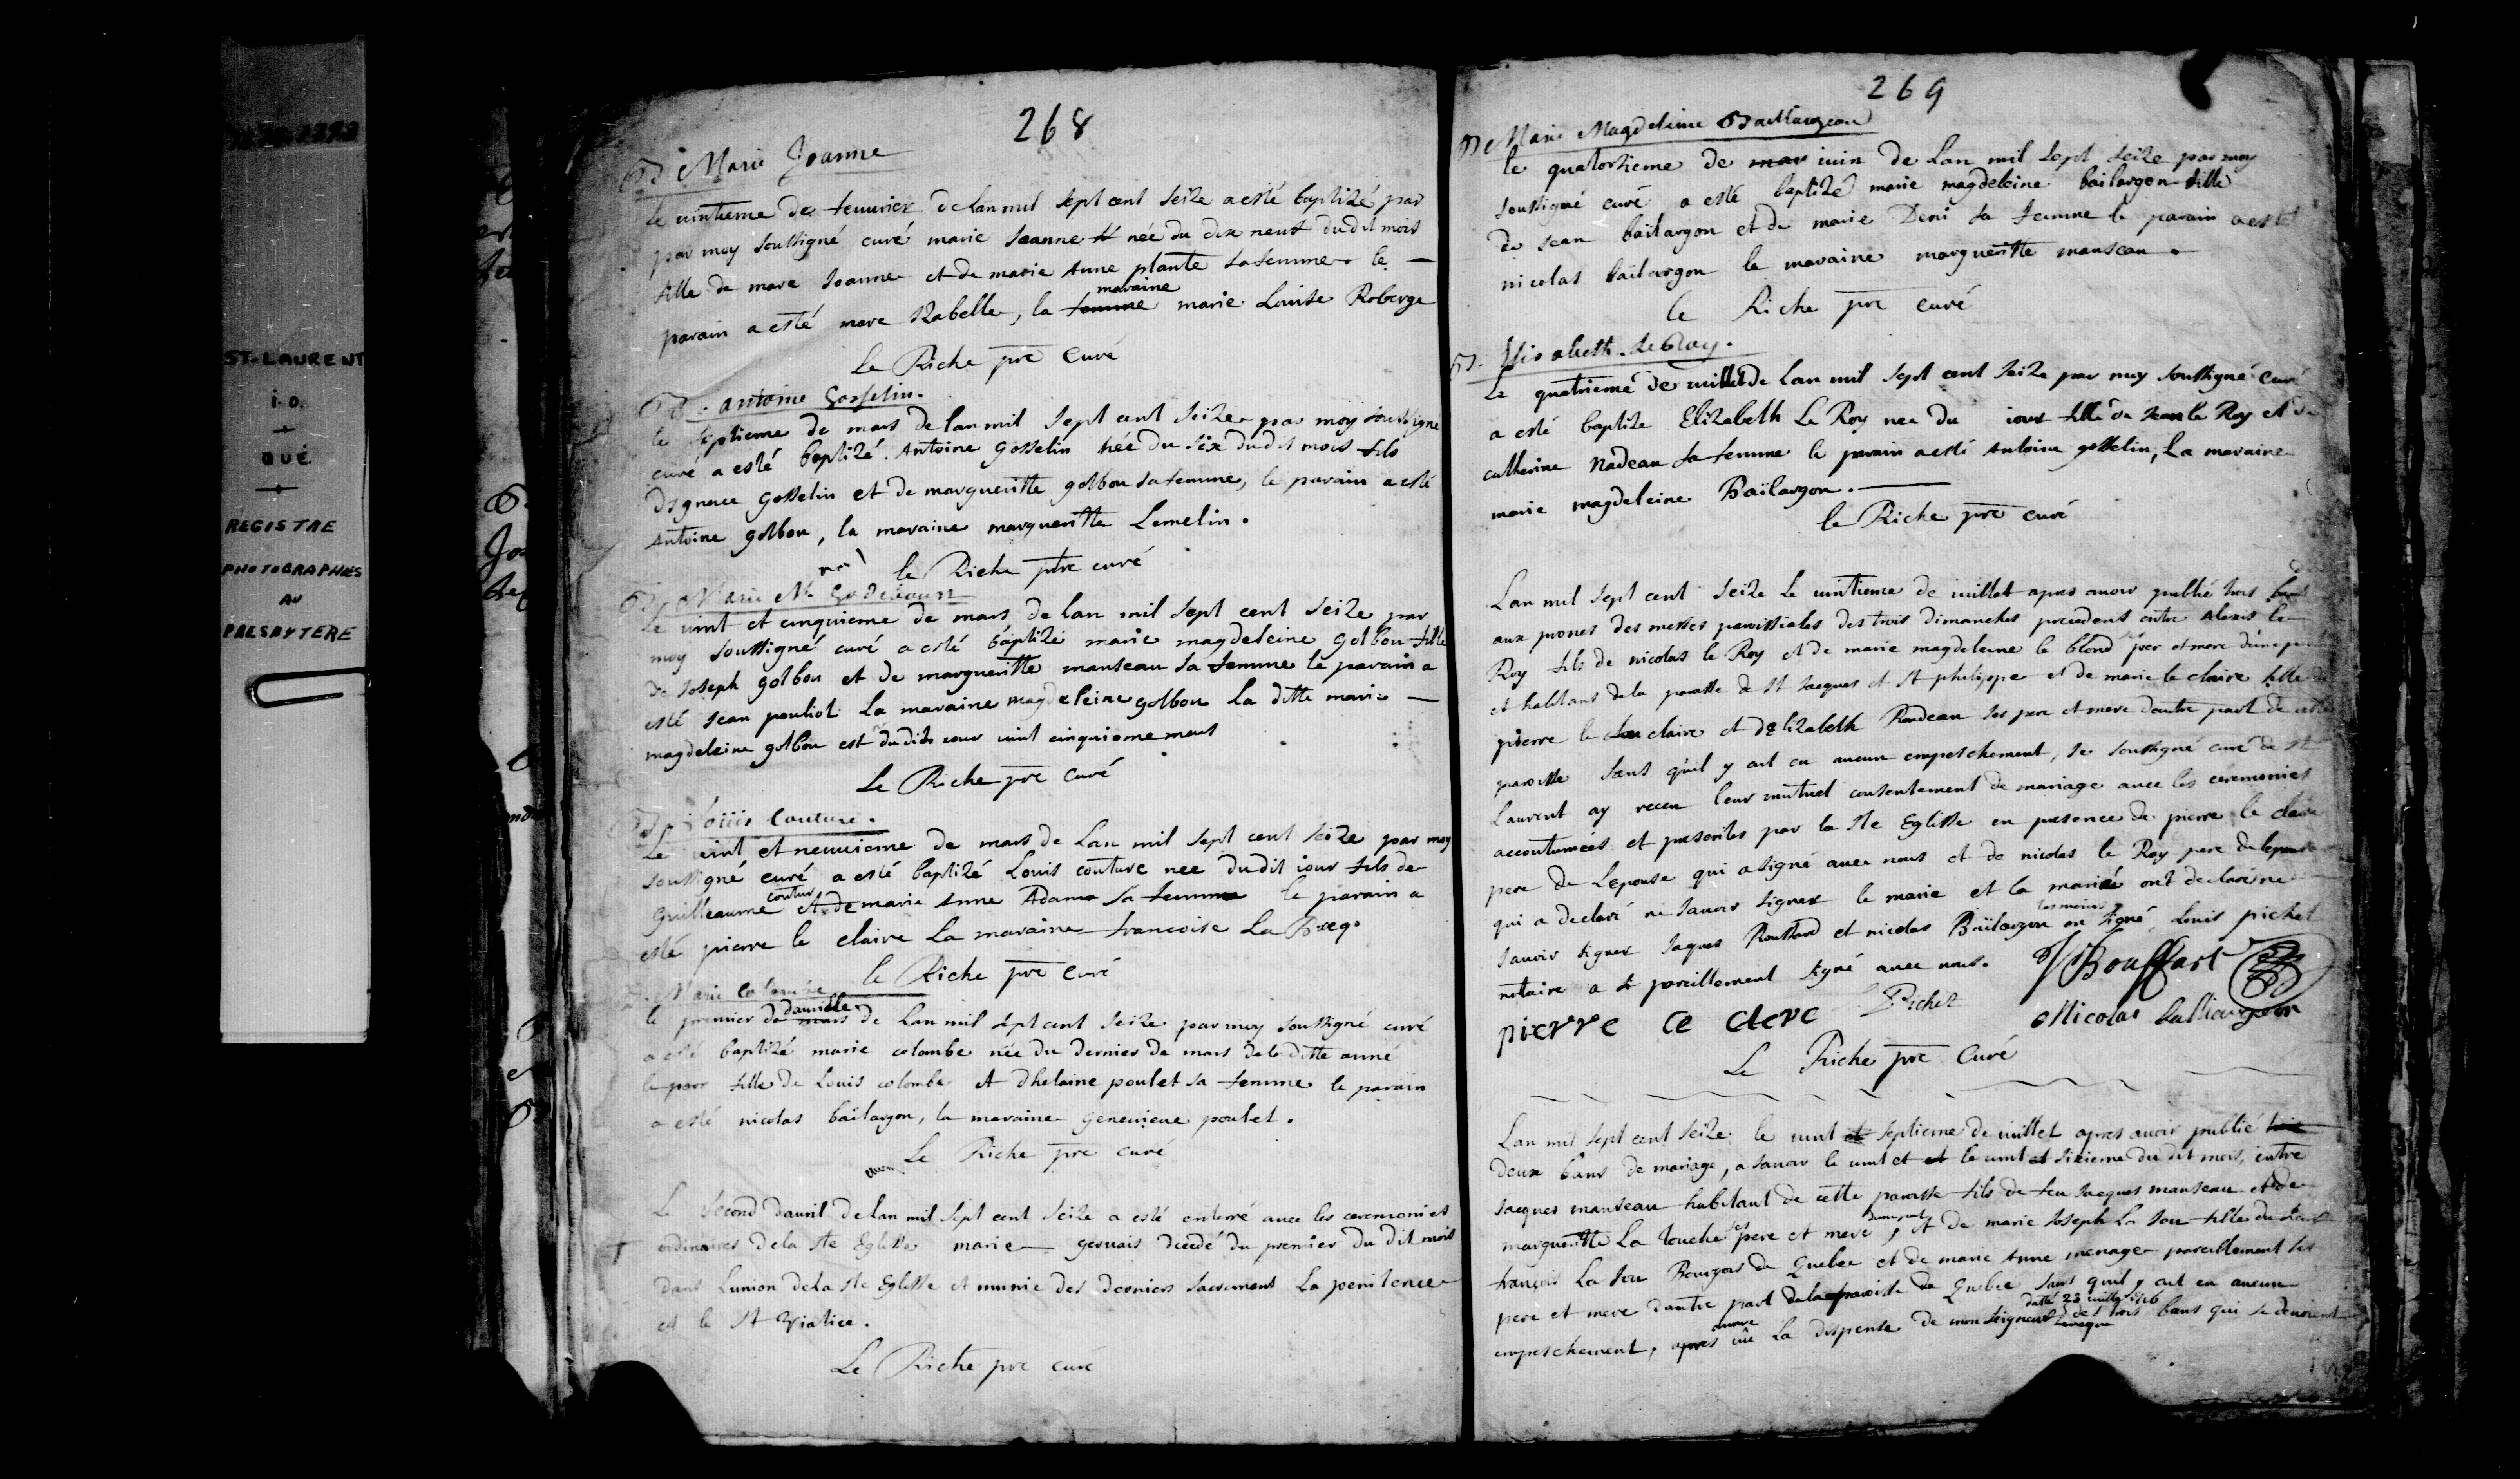 ST-LAURENT
i.o.
QUÉ.
REGISTRE
PHOTOGRAPHIES
AU
PRESBYTERE
268
B. Marie Joanne
le vintieme de feuvrier de lan mil sept cent seize a esté baptizé par
par moy soussigné curé marie Joanne née du dix neuf dudit mois
fille de marc Joanne et de marie Anne plante sa femme le
parain a esté marc Isabelle, la femme maraine marie Louise Roberge
Le Riche ptre curé
B. antoine Gosselin.
le septieme de mars de lan mil sept cent seize par moy soussigné
curé a esté baptizé Antoine Gosselin née du six dudit mois fils
Dignace Gosselin et de margueritte golbou sa femme, le parain a esté
Antoine golbou, la maraine margueritte Lemelin.
le Riche ptre curé
B. Marie M.
Le vint et cinquieme de mars de lan mil sept cent seize par
moy soussigné curé a esté baptizé marie magdeleine Golbou fille
de Joseph golbou et de margueritte manseau sa femme le parain a
esté Jean pouliot La maraine magdeleine golbou La ditte marie
magdeleine golbou est du dit iour vint cinquieme mars
Le Riche ptre curé
B. Loüis Couture.
Le vint et neuvieme de mars de Lan mil sept cent seize par moy
soussigné curé a esté baptizé Louis couture nee dudit iour fils de
Guilleaume coutur et de marie Anne Adam sa femme le parain a
esté pierre le claire La maraine francoise La Breq.
le Riche ptre curé
Marie Colombe
le premier de mars daurille de lan mil sept cent seize par moy soussigné curé
a esté baptizé marie colombe née du dernier de mars de la ditte anné
fille de Louis colombe et dhelaine poulet sa femme le parain
a esté nicolas bailargon, la maraine genevieve poulet.
Le Riche ptre curé
Le second dauril de lan mil sept cent seize a esté enterré avec les ceremonies
ordinaires de la Ste Eglisse marie gervais decedé du premier du dit mois
dans Lunion de la ste Eglisse et munie des derniers sacremens La penitence
et le St viatice.
Le Riche ptre curé
269
B. Marie Magdeleine Baillargeon
le quatorsieme de mars iuin de Lan mil sept seize par moy
soussigné curé a esté baptizé marie magdeleine bailargon fille
de Jean bailargon et de marie Deni sa femme le parain a esté
nicolas bailargon la maraine margueritte manseau.
le Riche ptre curé
B. Elisabeth. Le Roy.
Le quatrieme de iuillet de Lan mil sept cent seize par moy soussigné curé
a esté baptize Elizabeth Le Roy nee du iour fille de Jean le Roy et de
catherine Nadeau sa femme le parain a esté Antoine gosselin, La maraine
marie magdeleine Bailargon.
le Riche ptre curé
Lan mil sept cent seize Le vintieme de iuillet apres avoir publié trois bans
aux prones des messes paroissiales des trois dimanches precedens entre Alexis le
Roy fils de nicolas le Roy et de marie magdeleine le blond ses per et mere dune part
et habitans de la paroisse de St Jacques et St philippe et de marie le claire fille de
pierre le claire et dElizabeth Rondeau ses pere et mere dautre part de cette
paroisse sans quil y ait eu aucun empeschement, Je soussigné curé de St
Laurent ay receu leur mutuel consentement de mariage avec les ceremonies
accoutumées et prescrites par la Ste Eglisse en presence de pierre le claire
pere de Lepouse qui a signé avec nous et de nicolas le Roy pere de lepoux
qui a declaré ne savoir signer le marie et la mariée ont declaré ne
savoir signer Jaques Bouffard et nicolas Bailargon tesmoins on signé Louis pichet
notaire a pareillement signé avec nous.
J Bouffart
pierre le clerc Pichet Nicolas baillargeon
Le Riche ptre Curé
Lan mil sept cent seize le vint et septieme de iuillet apres avoir publié trois
deux bans de mariage, a savoir le vint et et le vint et sixieme du dit mois, entre
Jacques manseau habitant de cette paroisse fils de feu Jacques manseau et de
margueritte La touche ses pere et mere, dune part et de marie Joseph La Sou fille de
françois La Sou Bourgois de Quebec et de marie Anne menage pareillement ses
pere et mere dautre part de la paroisse de Quebec sans quil y ait eu aucun
empeschement, apres avoir vû La dispense de mon seigneur Leveque datté 23 iuillet 1716 des trois bans qui se devoient